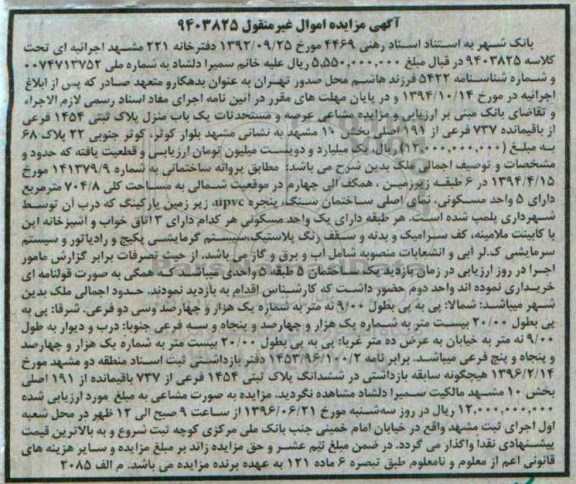 آگهی مزایده اموال غیرمنقول ۹۴۰۳۸۲۵
بانک شهر به استناد اسناد رهنی ۴۴۶۹ مورخ ۱۳۹۲/۰۹/۲۵ دفترخانه ۲۲۱ مشهد اجرائیه ای تحت
کلاسه ۹۴۰۳۸۲۵ در قبال مبلغ ۵,۵۵۰,۰۰۰,۰۰۰ ریال علیه خانم سمیرا دلشاد به شماره ملی ۰۰۷۴۷۱۳۷۵۲
و شماره شناسنامه ۵۴۲۲ فرزند هاشم محل صدور تهران به عنوان بدهکارو متعهد صادر که پس از ابلاغ
اجرائیه در مورخ ۱۳۹۴/۱۰/۱۴ و در پایان مهلت های مقرر در آئین نامه اجرای مفاد اسناد رسمی لازم الاجراء
و تقاضای بانک مبنی بر ارزیابی و مزایده مشاعی عرصه و مستحدثات یک باب منزل پلاک ثبتی ۱۴۵۴ فرعی
از باقیمانده ۷۳۷ فرعی از ۱۹۱ اصلی بخش ۱۰ مشهد به نشانی مشهد بلوار کوثر، کوثر جنوبی ۲۲ پلاک ۶۸
به مبلغ (۱۲,۰۰۰,۰۰۰,۰۰۰) ریال یک میلیارد و دویست میلیون تومان ارزیابی و قطعیت یافته که حدود و
مشخصات و توصیف اجمالی ملک بدین شرح می باشد: مطابق پروانه ساختمانی به شماره ۱۴۱۳۷۹/۹ مورخ
۱۳۹۴/۴/۱۵ در ۶ طبقه زیرزمین ، همکف الی چهارم در موقعیت شمالی به مساحت کلی ۷۰۴/۸ مترمربع
دارای ۵ واحد مسکونی، نمای اصلی ساختمان سنگ، پنجره upvc، زیر زمین پارکینگ که درب آن توسط
شهرداری پلمب شده است. هر طبقه دارای یک واحد مسکونی هر کدام دارای ۳ اتاق خواب و آشپزخانه این
با کابینت ملامینه، کف سرامیک و بدنه و سقف رنگ پلاستیک، سیستم گرمایشی پکیج و رادیاتور و سیستم
سرمایشی کولر آبی و انشعابات منصوبه شامل آب و برق و گاز می باشد. از حیث تصرفات برابر گزارش مامور
اجرا در روز ارزیابی در زمان بازدید یک ساختمان ۵ طبقه ۵ واحدی میباشد که همگی به صورت قولنامه ای
خریداری نموده اند واحد دوم حضور داشت که کارشناس اقدام به بازدید نمودند. حدود اجمالی ملک بدین
شهر میباشد: شمالا: پی به پی بطول ۹/۰۰ نه متر به شماره یک هزار و چهارصد وسی دو فرعی. شرقا: پی به
پی بطول ۲۰/۰۰ بیست متر به شماره یک هزار و چهارصد و پنجاه و سه فرعی جنوبا: درب و دیوار به طول
۹/۰۰ نه متر به خیابان به عرض ده متر غربا: پی به پی بطول ۲۰/۰۰ بیست متر به شماره یک هزار و چهارصد
و پنجاه و پنج فرعی میباشد. برابر نامه ۱۴۵۳/۹۶/۱۰۰/۲ دفتر بازداشتی ثبت اسناد منطقه دو مشهد مورخ
۱۳۹۶/۲/۱۴ هیچگونه سابقه بازداشتی در ششدانگ پلاک ثبتی ۱۴۵۴ فرعی از ۷۳۷ باقیمانده از ۱۹۱ اصلی
بخش ۱۰ مشهد مالکیت سمیرا دلشاد مشاهده نگردید. مزایده به صورت مشاعی به مبلغ مورد ارزیابی شده
۱۲,۰۰۰,۰۰۰,۰۰۰ ریال در روز سه شنبه مورخ ۱۳۹۶/۰۶/۲۱ از ساعت ۹ صبح الی ۱۲ ظهر در محل شعبه
اول اجرای ثبت مشهد واقع در خیابان امام خمینی جنب بانک ملی مرکزی کوچه ثبت شروع و به بالاترین قیمت
پیشنهادی نقدا واگذار می گردد. در ضمن مبلغ نیم عشر و حق مزایده زائد بر مبلغ مزایده و سایر هزینه های
قانونی اعم از معلوم و نامعلوم طبق تبصره ۶ ماده ۱۲۱ به عهده برنده مزایده می باشد. م الف ۲۰۸۵